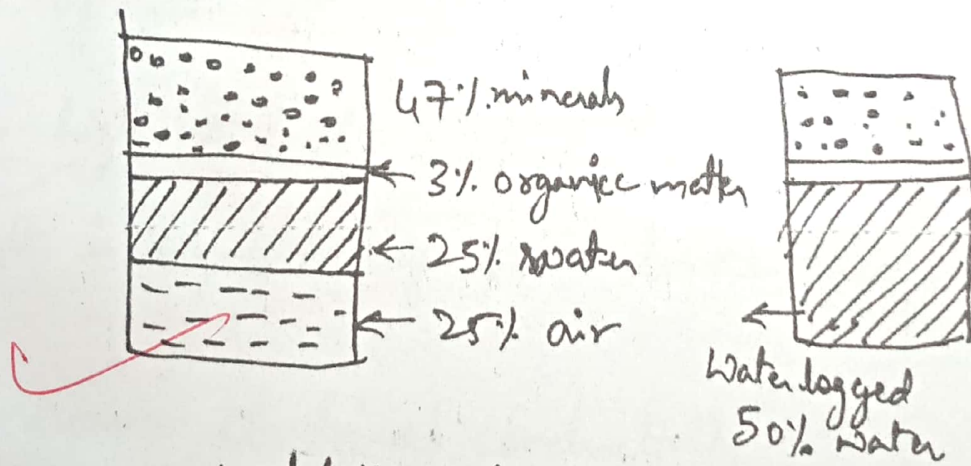 47% minerals
3% organicc matter
25% water
25% air
Water logged
50% water